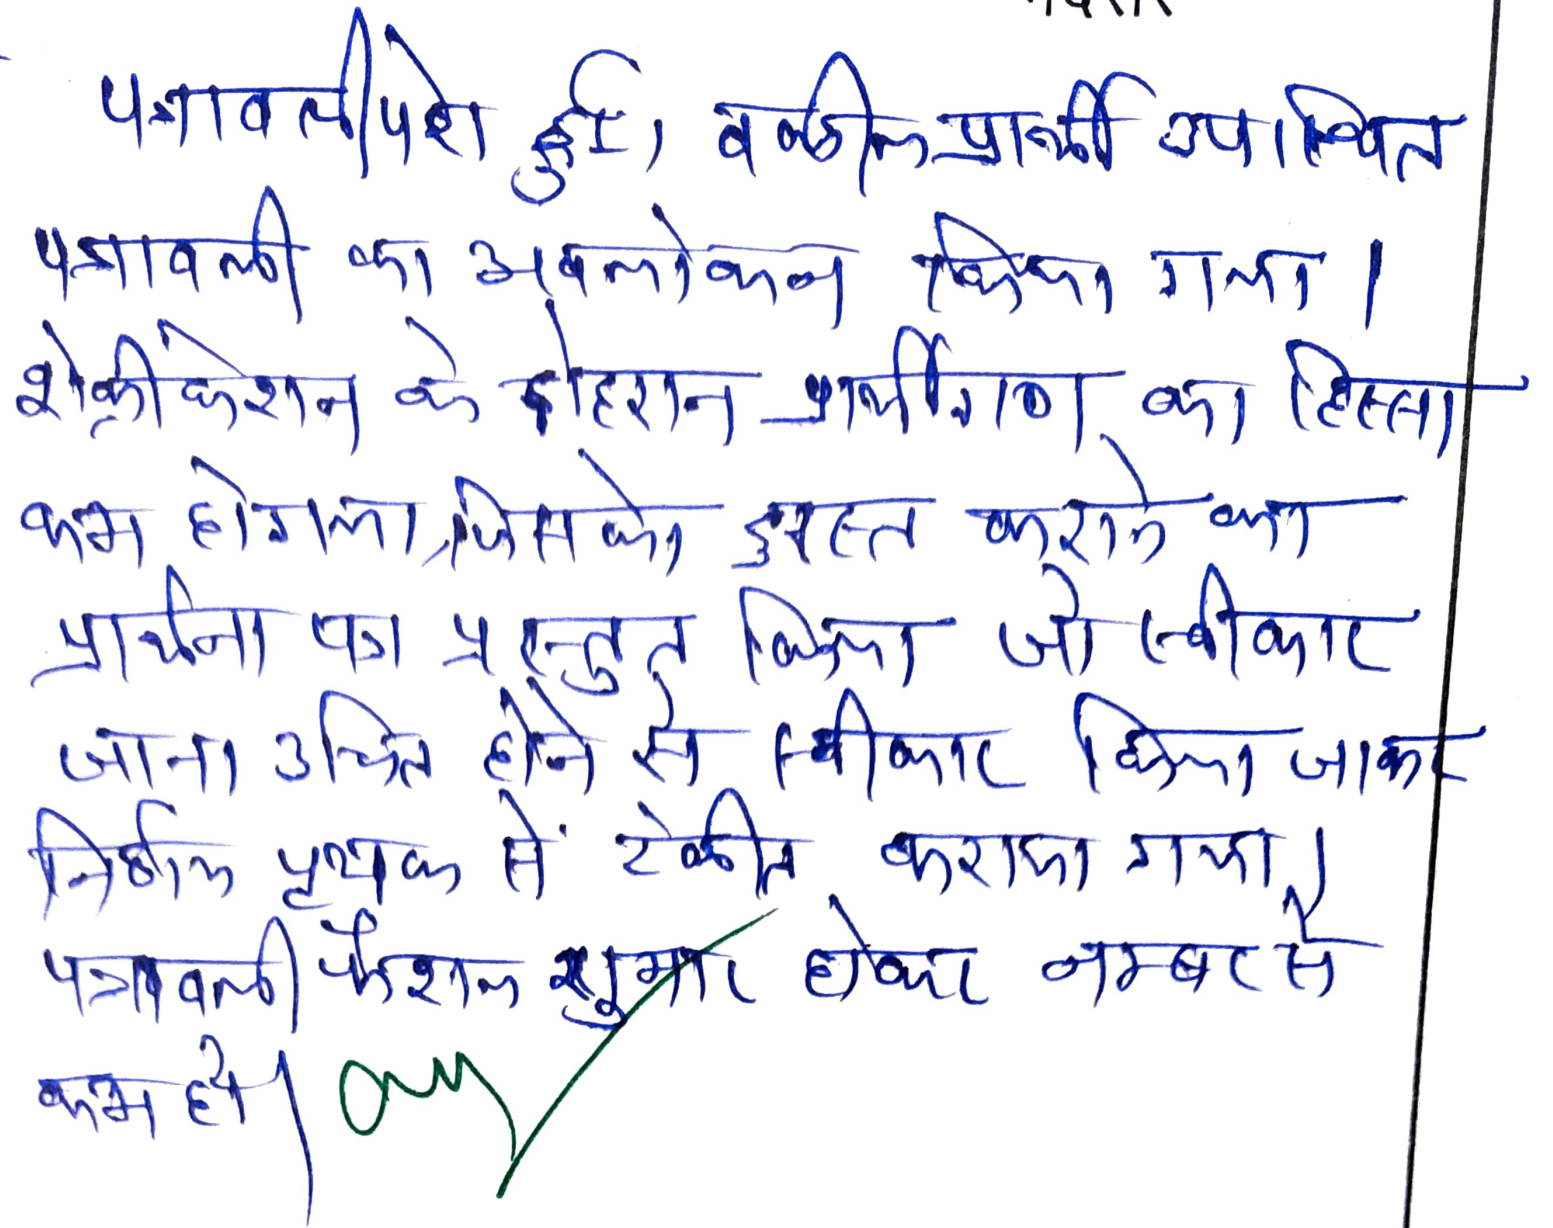 पत्रावली पेश हुई, वकील प्रार्थी उपस्थित
पत्रावली का अवलोकन किया गया।
शेग्रीकेशन के दोहरान प्रार्थीगण का हिस्सा
कम होगया, जिसको दुरस्त कराने का
प्रार्थना पत्र प्रस्तुत किया जो स्वीकार
जाना उचित होने से स्वीकार किया जाकर
निर्णय पृथक से टंकीत कराया गया।
पत्रावली फैशल शुमार होकर नम्बर से
कम हो।